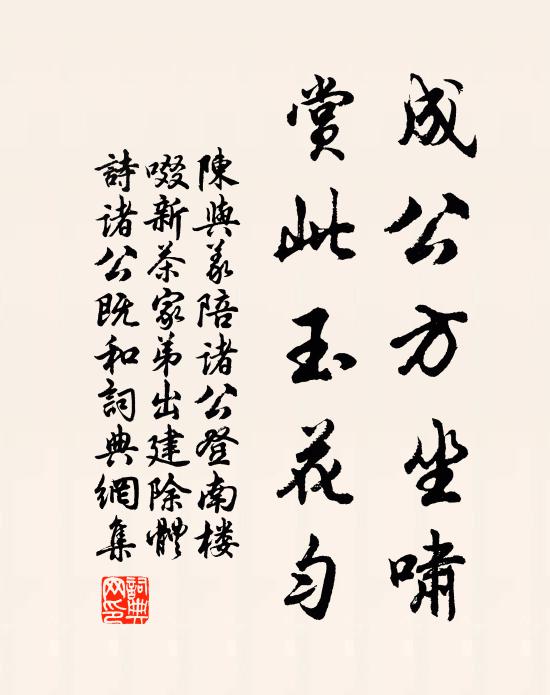 成公方坐啸
赏此玉花匀
陳與義陪诸公登南楼
啜新茶家弟出建除體
詩诸公既和詞典網集
詞典網印